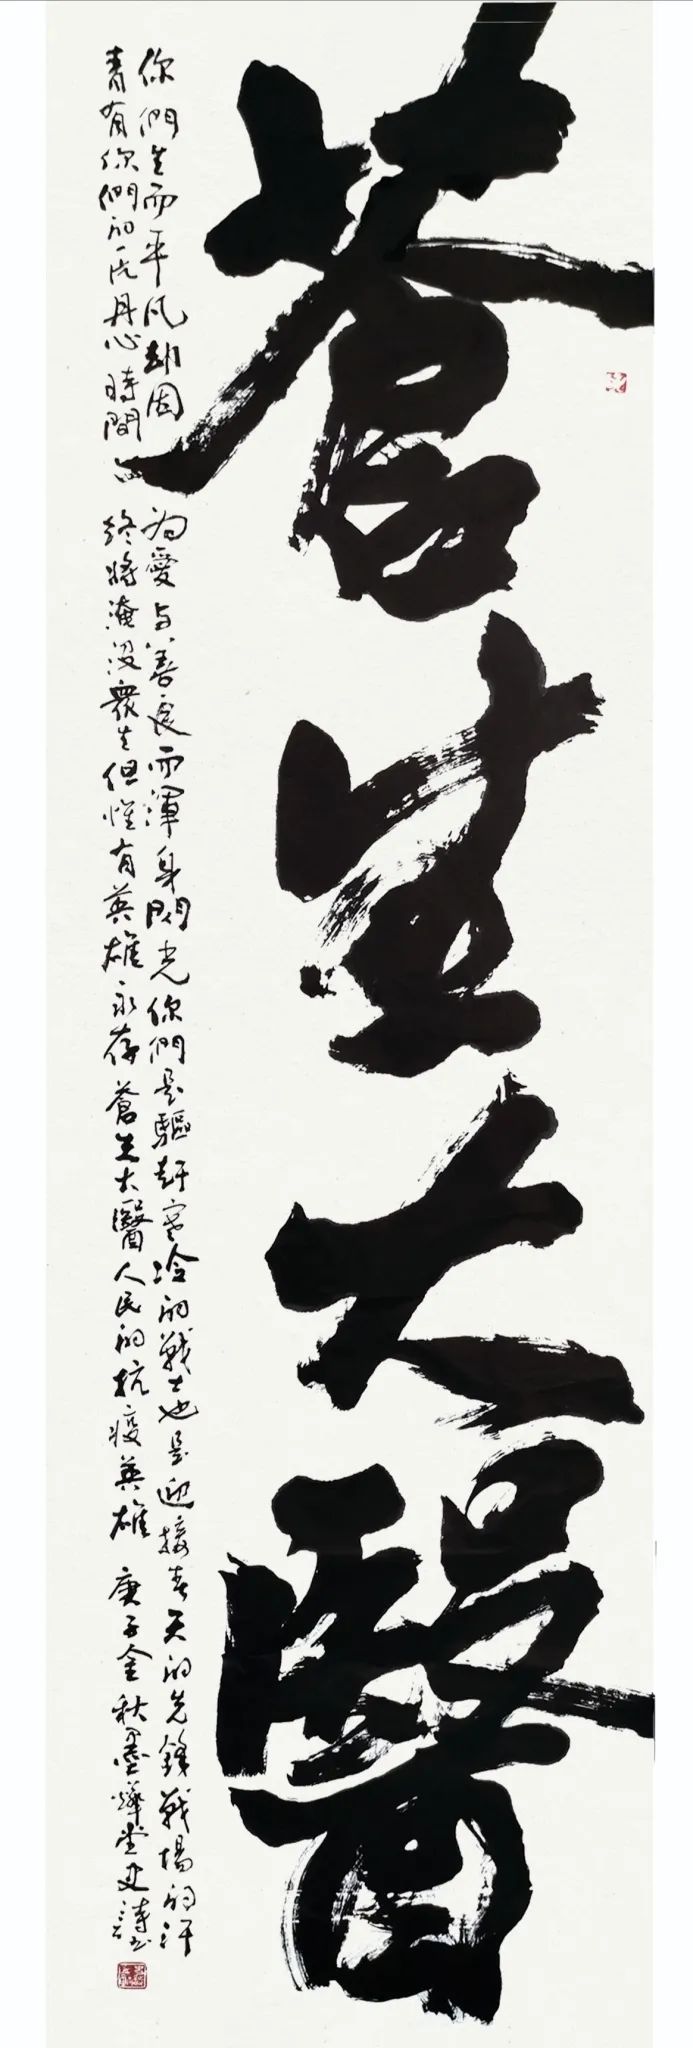 蒼生大醫
你們生而平凡却因為愛与善良而渾身閃光你們是驅赶寒冷的戰士也是迎接春天的先鋒戰場的汗
青有你們的一片丹心時間終將淹沒衆生但惟有英雄永存蒼生大醫人民的抗疫英雄庚子金秋墨燁堂史詩